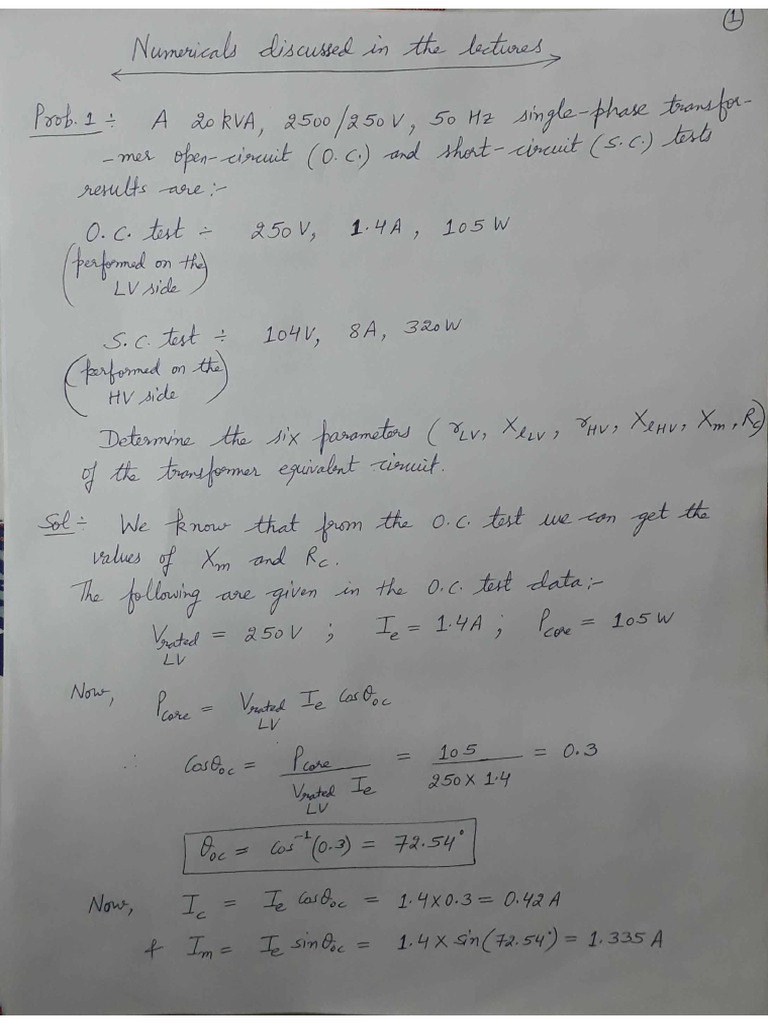 1
Numericals discussed in the lectures
Prob. 1 ÷ A 20 kVA, 2500/250V, 50 Hz single-phase transfor-
-mer open-circuit (O.C.) and short-circuit (S.C.) tests
results are :-
O.C. test ÷ 250V, 1.4A, 105W
(performed on the
LV side)
S.C. test ÷ 104V, 8A, 320W
(performed on the
HV side)
Determine the six parameters (r_LV, X_lLV, r_HV, X_lHV, X_m, R_c)
of the transformer equivalent circuit.
Sol ÷ We know that from the O.C. test we can get the
values of X_m and R_c.
The following are given in the O.C. test data :-
V_rated LV = 250V ; I_e = 1.4A ; P_core = 105W
Now, P_core = V_rated LV I_e Cosθ_oc
∴ Cosθ_oc = P_core / (V_rated LV I_e) = 105 / (250 × 1.4) = 0.3
θ_oc = Cos⁻¹(0.3) = 72.54°
Now, I_c = I_e Cosθ_oc = 1.4×0.3 = 0.42 A
& I_m = I_e sinθ_oc = 1.4 × sin(72.54°) = 1.335 A